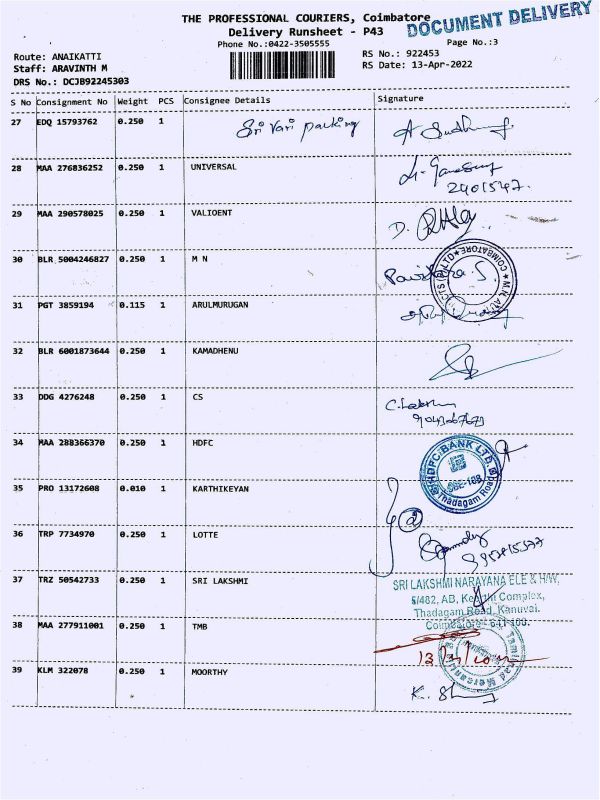 DOCUMENT DELIVERY
THE PROFESSIONAL COURIERS, Coimbatore
Delivery Runsheet - P43
Phone No.:0422-3505555
Page No.:3
Route: ANAIKATTI
RS No.: 922453
Staff: ARAVINTH M
RS Date: 13-Apr-2022
DRS No.: DCJB92245303
S No Consignment No Weight PCS Consignee Details Signature
27 EDQ 15793762 0.250 1 Sri Vari packing
28 MAA 276836252 0.250 1 UNIVERSAL
29 MAA 290578025 0.250 1 VALIOENT
30 BLR 5004246827 0.250 1 M N
31 PGT 3859194 0.115 1 ARULMURUGAN
32 BLR 6001873644 0.250 1 KAMADHENU
33 DDG 4276248 0.250 1 CS
34 MAA 288366370 0.250 1 HDFC
HDFC BANK LTD.
Thadagam Road
35 PRO 13172608 0.010 1 KARTHIKEYAN
36 TRP 7734970 0.250 1 LOTTE
37 TRZ 50542733 0.250 1 SRI LAKSHMI
SRI LAKSHMI NARAYANA ELE & H/W,
5/482, AB, Complex,
Thadagam Road, Kanuvai.
Coimbatore - 641 108.
38 MAA 277911001 0.250 1 TMB
39 KLM 322078 0.250 1 MOORTHY